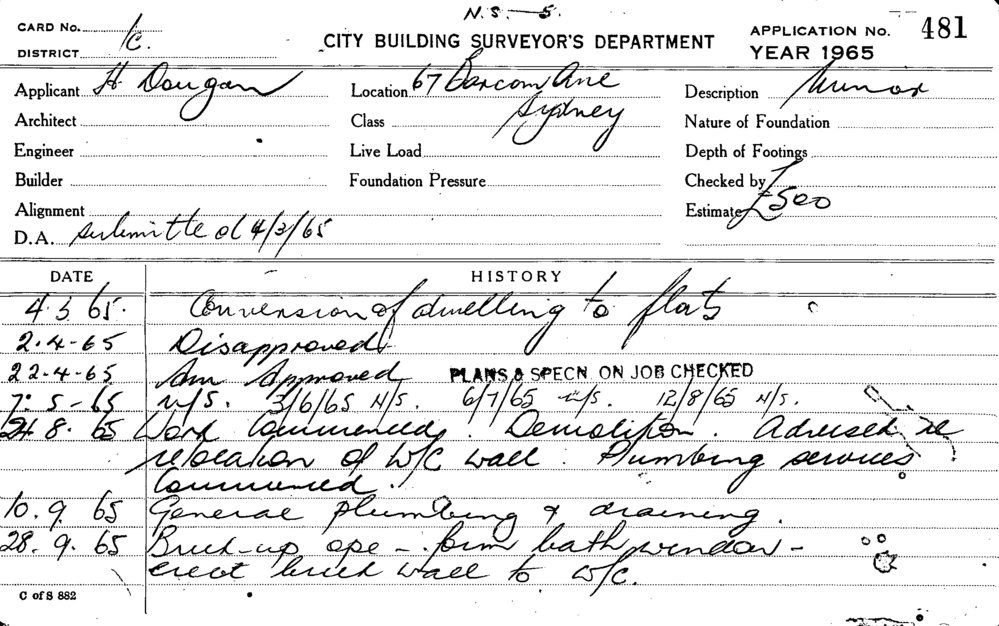 N.S. 5.
CARD No. 1c.
DISTRICT
CITY BUILDING SURVEYOR'S DEPARTMENT
APPLICATION No. 481
YEAR 1965
Applicant H Dougan
Location 67 Barcom Ave
Sydney
Description
Architect
Class
Nature of Foundation
Engineer
Live Load
Depth of Footings
Builder
Foundation Pressure
Checked by
Alignment
Estimate £500
D.A. submitted 4/3/65
DATE HISTORY
4.3.65. Conversion of dwelling to flats
2.4-65 Disapproved
22-4-65 Am Approved PLANS & SPECN. ON JOB CHECKED
7.5-65 N/S. 3/6/65 N/S. 6/7/65 N/S. 12/8/65 N/S.
24.8.65 Work Commenced. Demolition. Advised re
relocation of W/C wall. Plumbing services
Commenced.
10.9.65 General plumbing & draining.
28.9.65 Brick-up ope - form bath window -
erect brick wall to W/C.
C of S 882